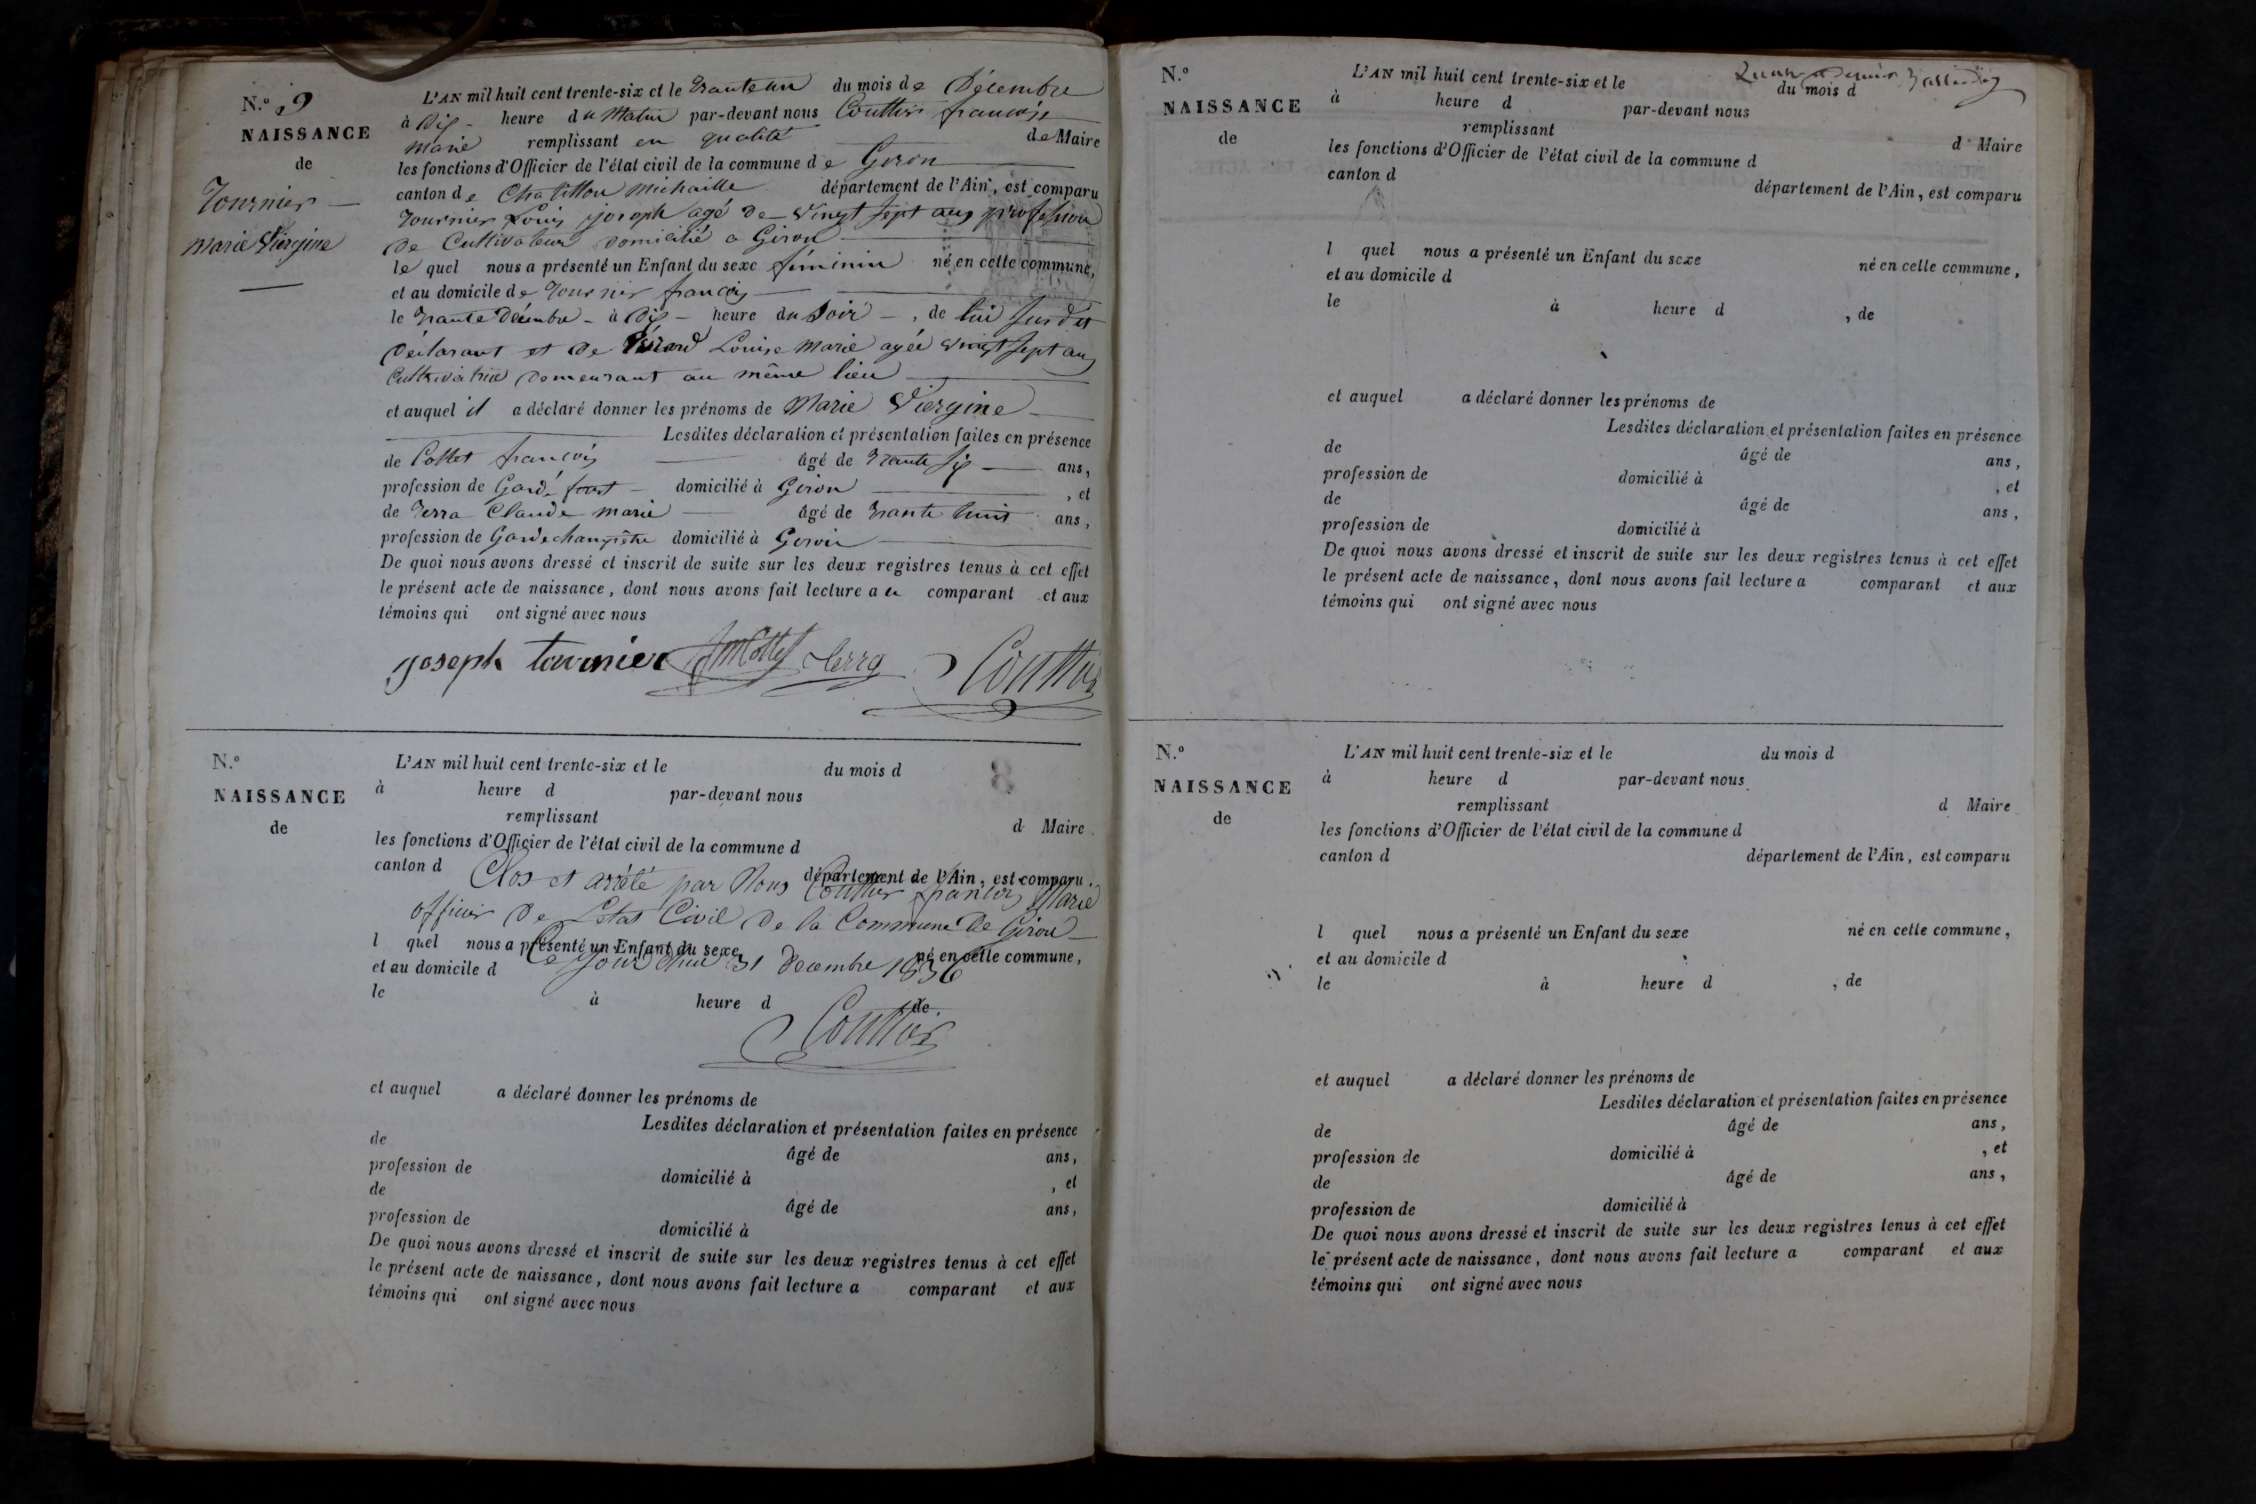 N.º 9
NAISSANCE
de
Tournier
Marie Viergine
L'AN mil huit cent trente-six et le trante un du mois de Décembre
à dix heure du Matin par-devant nous Couttier françois
marie remplissant en qualité de Maire
les fonctions d'Officier de l'état civil de la commune de Giron
canton de Chatillon Michaille département de l'Ain, est comparu
Tournier Louis joseph agé de vingt sept ans profession
de Cultivateur domicilié a Giron
le quel nous a présenté un Enfant du sexe féminin né en cette commune,
et au domicile de Tournier françois
le trante Décembre à dix heure du Soir, de lui susdit
déclarant et de Louise Marie agée vingt sept ans
Cultivatrice demeurant au même lieu
et auquel il a déclaré donner les prénoms de Marie Viergine
Lesdites déclaration et présentation faites en présence
de Collet françois âgé de trante six ans,
profession de Garde domicilié à Giron, et
de Terra Claude marie âgé de trante huit ans,
profession de Garde champêtre domicilié à Giron
De quoi nous avons dressé et inscrit de suite sur les deux registres tenus à cet effet
le présent acte de naissance, dont nous avons fait lecture au comparant et aux
témoins qui ont signé avec nous
joseph tournier Collet Terra Couttier
N.º
NAISSANCE
de
L'AN mil huit cent trente-six et le du mois d
à heure d par-devant nous
remplissant d Maire
les fonctions d'Officier de l'état civil de la commune d
canton d département de l'Ain, est comparu
Clos et arrêté par Nous Couttier françois Marie
officier de Letat Civil de la Commune De Giron
l quel nous a présenté un Enfant du sexe né en cette commune,
Ce jourdhui 31 decembre 1836
et au domicile d
le à heure d de
Couttier
et auquel a déclaré donner les prénoms de
Lesdites déclaration et présentation faites en présence
de âgé de ans,
profession de domicilié à , et
de âgé de ans,
profession de domicilié à
De quoi nous avons dressé et inscrit de suite sur les deux registres tenus à cet effet
le présent acte de naissance, dont nous avons fait lecture a comparant et aux
témoins qui ont signé avec nous
N.º
NAISSANCE
de
L'AN mil huit cent trente-six et le du mois d
à heure d par-devant nous
remplissant d Maire
les fonctions d'Officier de l'état civil de la commune d
canton d département de l'Ain, est comparu
l quel nous a présenté un Enfant du sexe né en cette commune,
et au domicile d
le à heure d , de
et auquel a déclaré donner les prénoms de
Lesdites déclaration et présentation faites en présence
de âgé de ans,
profession de domicilié à , et
de âgé de ans,
profession de domicilié à
De quoi nous avons dressé et inscrit de suite sur les deux registres tenus à cet effet
le présent acte de naissance, dont nous avons fait lecture a comparant et aux
témoins qui ont signé avec nous
N.º
NAISSANCE
de
L'AN mil huit cent trente-six et le du mois d
à heure d par-devant nous
remplissant d Maire
les fonctions d'Officier de l'état civil de la commune d
canton d département de l'Ain, est comparu
l quel nous a présenté un Enfant du sexe né en cette commune,
et au domicile d
le à heure d , de
et auquel a déclaré donner les prénoms de
Lesdites déclaration et présentation faites en présence
de âgé de ans,
profession de domicilié à , et
de âgé de ans,
profession de domicilié à
De quoi nous avons dressé et inscrit de suite sur les deux registres tenus à cet effet
le présent acte de naissance, dont nous avons fait lecture a comparant et aux
témoins qui ont signé avec nous